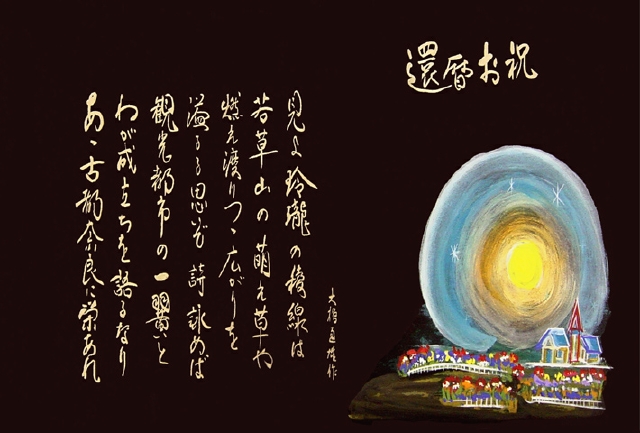 還暦お祝
見よ玲瓏の稜線は
若草山の萌え草や
燃え渡りつゝ広がりを
溢るる思ひ詩詠めば
観光都市の一翼と
わが成立ちを語るなり
あゝ古都奈良に栄あれ